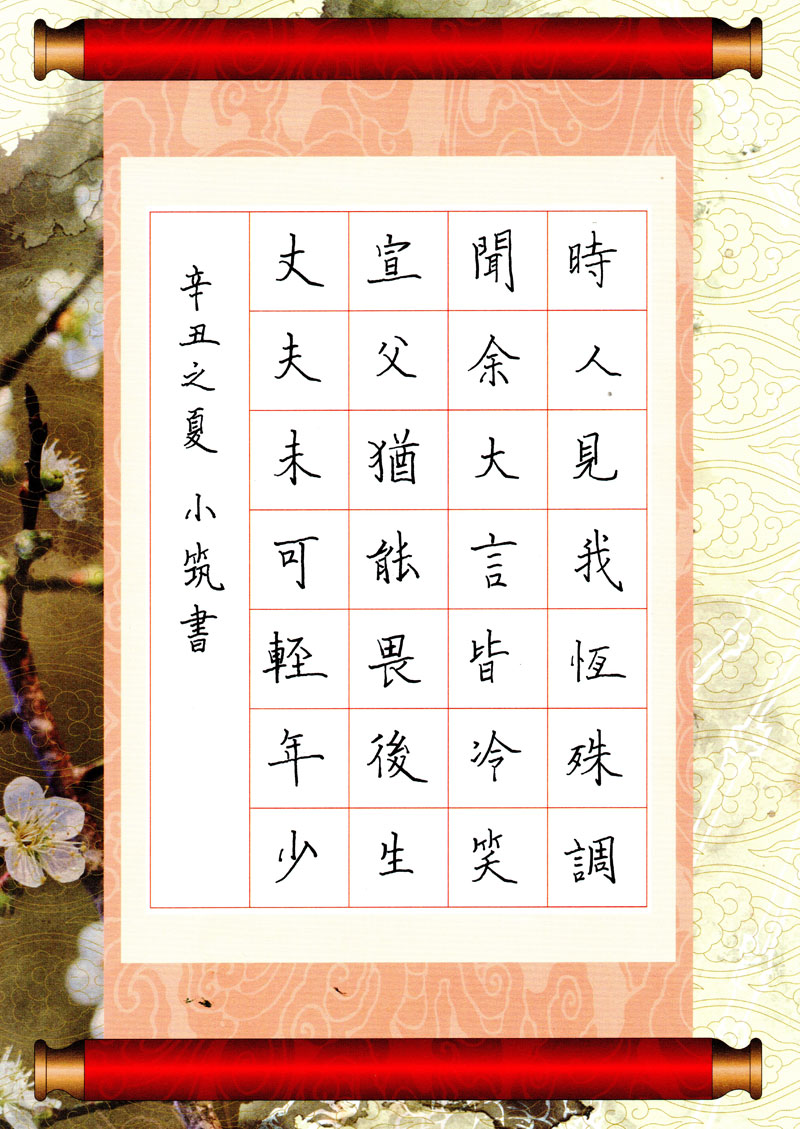 時人見我恆殊調
聞余大言皆冷笑
宣父猶能畏後生
丈夫未可輕年少
辛丑之夏 小筑書